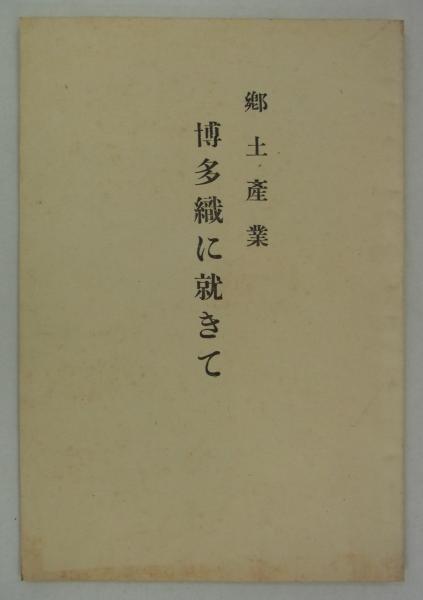 鄕土產業
博多織に就きて